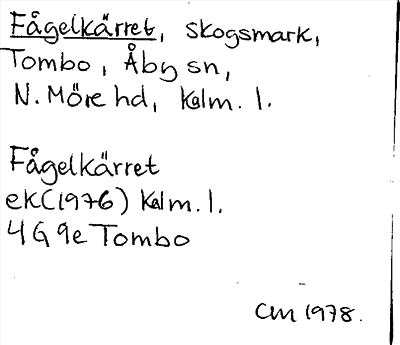 Fågelkärret, skogsmark,
Tombo, Åby sn,
N. Möre hd, Kalm. l.
Fågelkärret
ek(1976) Kalm. l.
4G 9e Tombo
CM 1978.